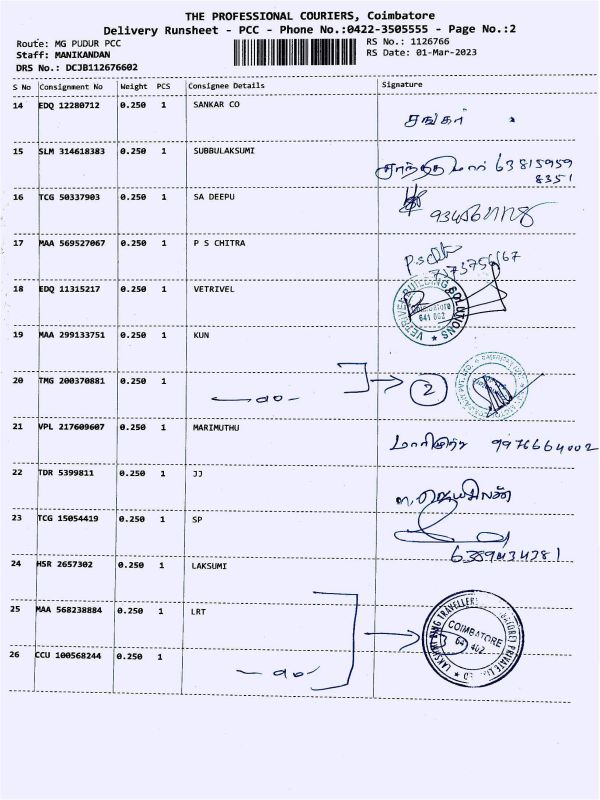 THE PROFESSIONAL COURIERS, Coimbatore
Delivery Runsheet - PCC - Phone No.:0422-3505555 - Page No.:2
Route: MG PUDUR PCC RS No.: 1126766
Staff: MANIKANDAN RS Date: 01-Mar-2023
DRS No.: DCJB112676602
S No Consignment No Weight PCS Consignee Details Signature
14 EDQ 12280712 0.250 1 SANKAR CO
சங்கர்
15 SLM 314618383 0.250 1 SUBBULAKSUMI
63815959
8351
16 TCG 50337903 0.250 1 SA DEEPU
17 MAA 569527067 0.250 1 P S CHITRA
18 EDQ 11315217 0.250 1 VETRIVEL
VETRIVEL BUILDING SOLUTIONS
Coimbatore
641 002
19 MAA 299133751 0.250 1 KUN
20 TMG 200370881 0.250 1
-do- 2
21 VPL 217609607 0.250 1 MARIMUTHU
மாரிமுத்து 9976664002
22 TDR 5399811 0.250 1 JJ
23 TCG 15054419 0.250 1 SP
6389434281
24 HSR 2657302 0.250 1 LAKSUMI
25 MAA 568238884 0.250 1 LRT
COIMBATORE
641 402
26 CCU 100568244 0.250 1
-do-